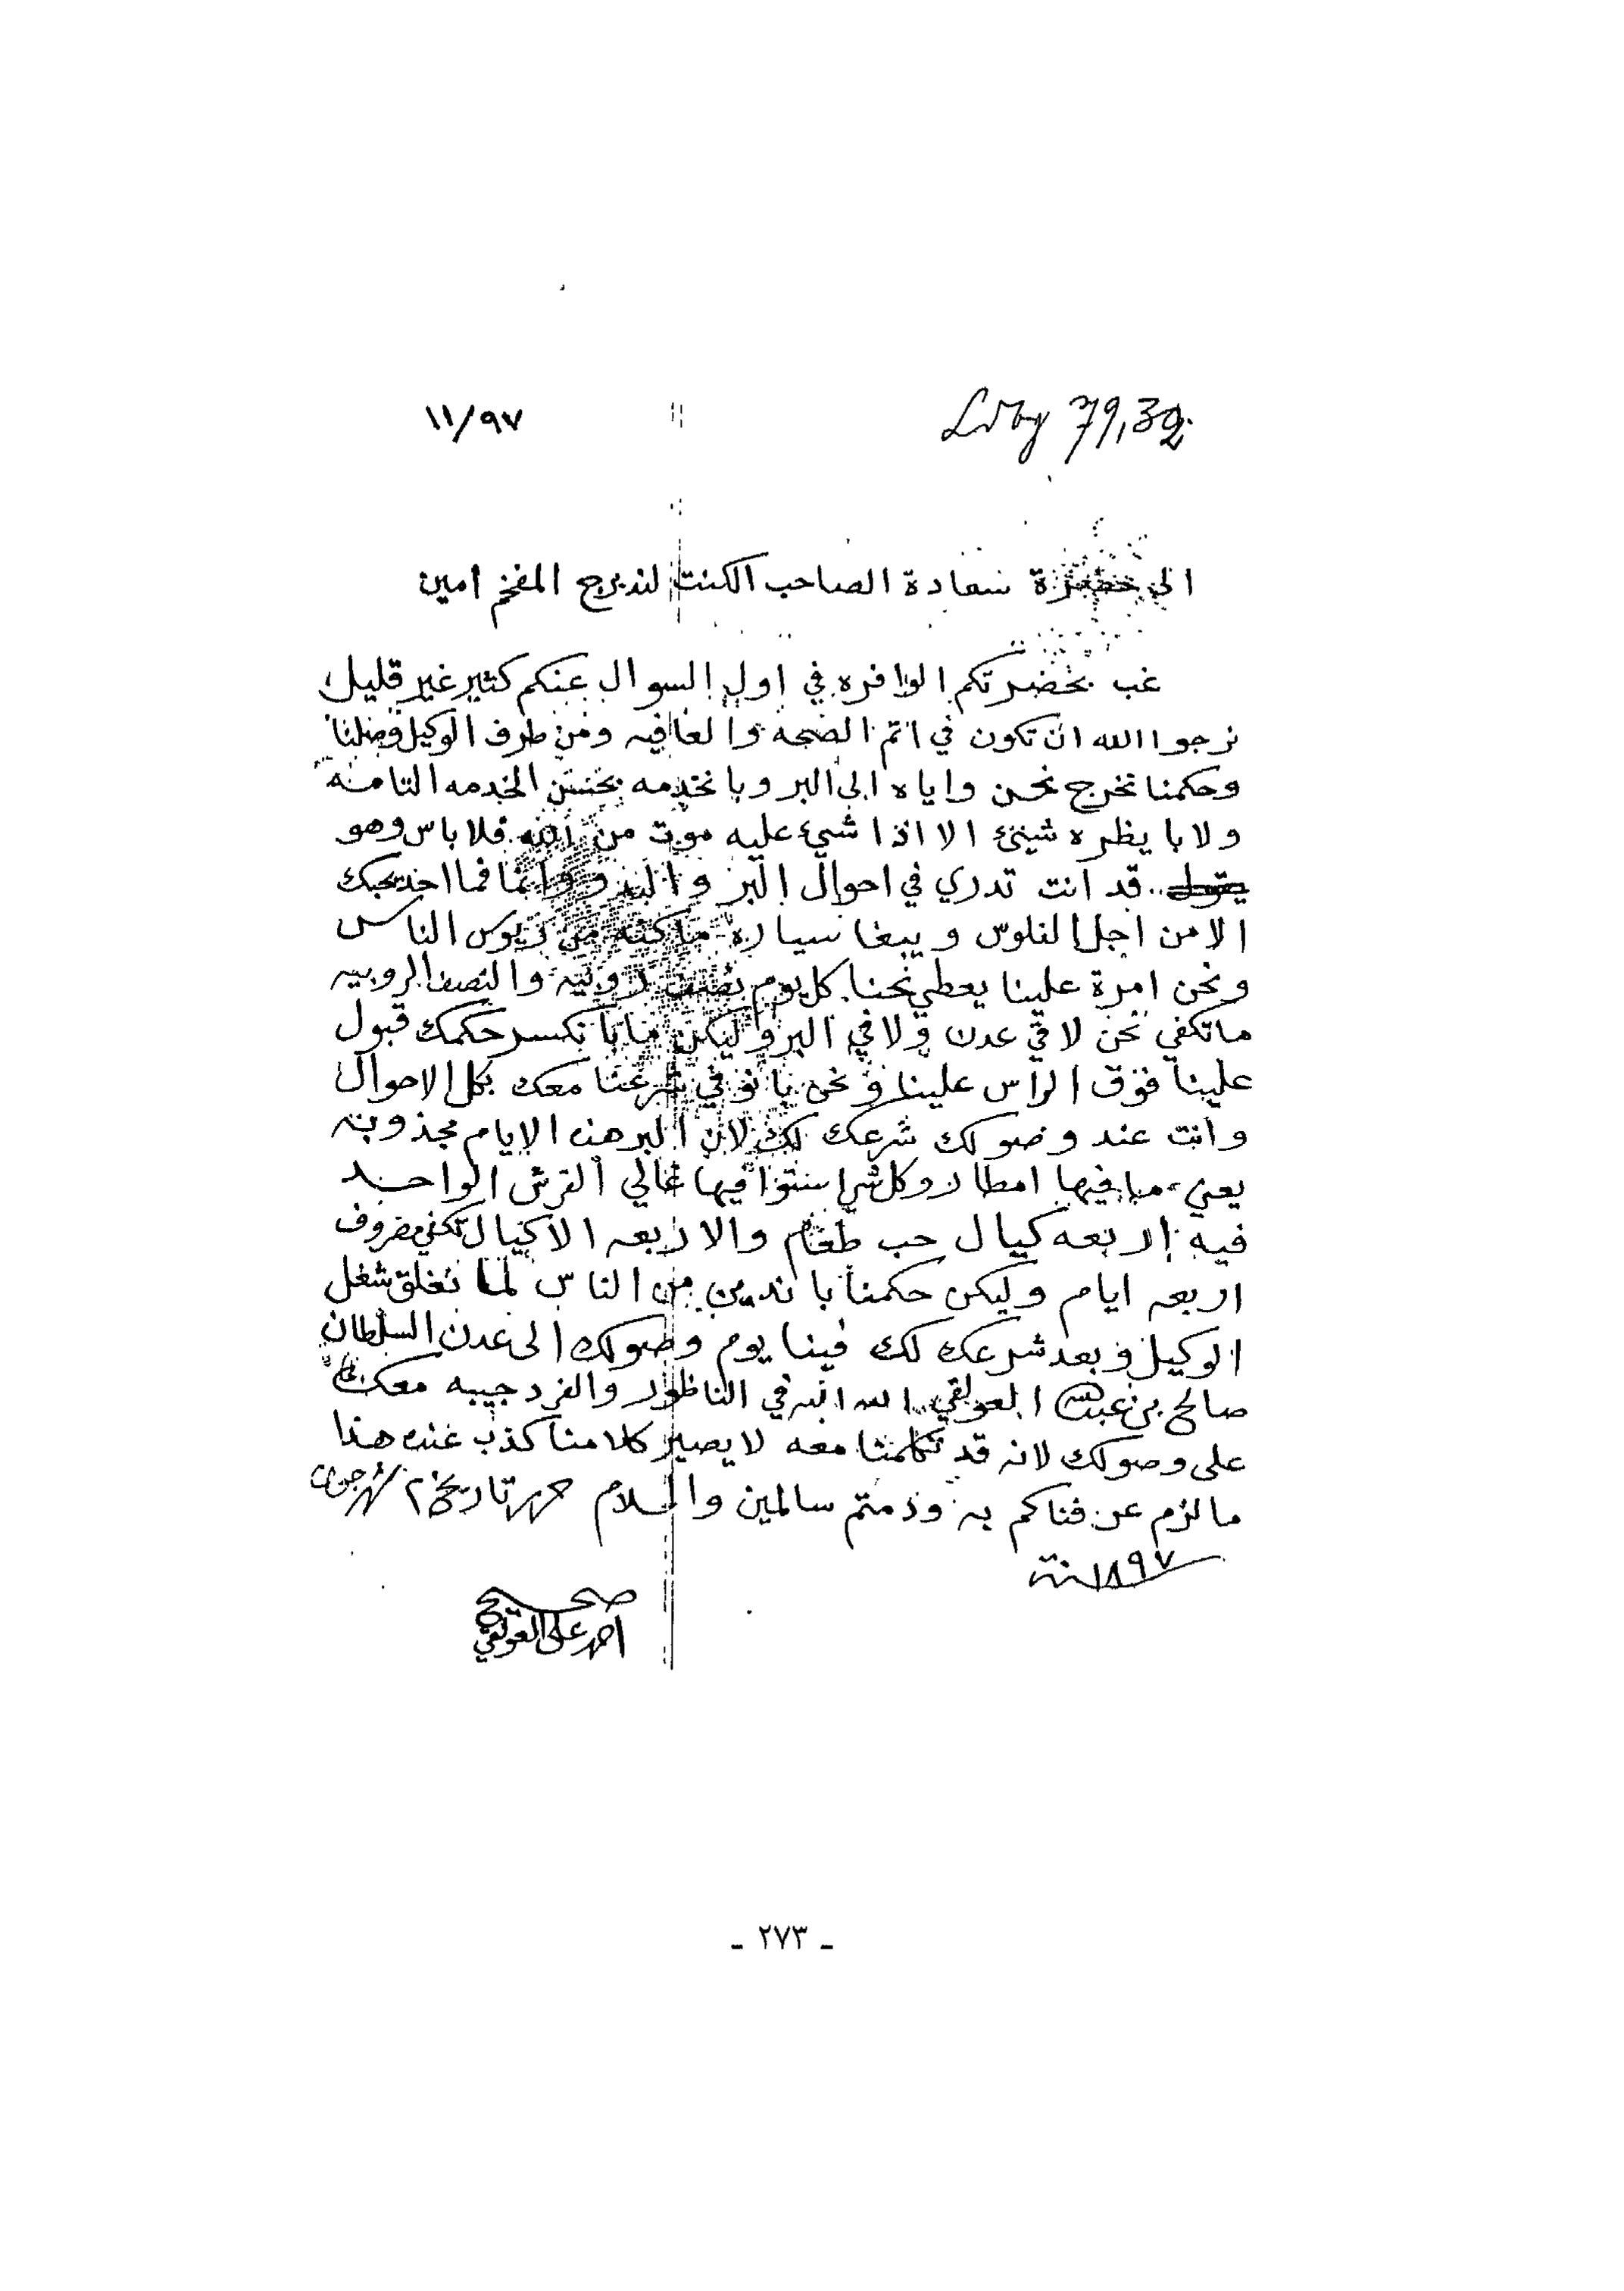 Ldbg 79,32.
١١/٩٧
الى حضرة سعادة الصاحب الكنت لندبرج المفخم امين
غب بحضرتكم الوافره في اول السوال عنكم كثير غير قليل
نرجوا الله ان تكون في اتم الصحة والعافيه ومن طرف الوكيل وصلنا
وحكمنا نخرج نحن واياه الى البر وبا نخدمه بحسن الخدمه التامة
ولا با يظره شيئ الا اذا شيء عليه موت من الله فلا باس وهو
قد انت تدري في احوال البر والبدو وانما فما احد يحبك
الا من اجل الفلوس ويبغا سياره من ريوس الناس
ونحن امرة علينا يعطي نحنا كل يوم نصف روبيه والنصف الروبيه
ماتكفي نحن لا في عدن ولا في البر وليكن ما با نكسر حكمك قبول
علينا فوق الراس علينا ونحن با نوفي شرعنا معك بكل الاحوال
وانت عند وصولك شرعك لك لان البر هذه الايام مجذوبة
يعني ما فيها امطار وكل شي فيها غالي القرش الواحد
فيه اربعه كيال حب طعام والاربعه الاكيال تكفي مصروف
اربعه ايام وليكن حكمنا با ندين من الناس لما نغلق شغل
الوكيل وبعد شرعك لك فينا يوم وصولك الى عدن السلطان
صالح بن عبدالله العولقي الله الله في الناظور والفرد جيبه معك
على وصولك لانه قد تكلمنا معه لا يصير كلامنا كذب عنده هذا
مالزم عرفناكم به ودمتم سالمين والسلام حرر تاريخ ٢ شهر جون
١٨٩٧ سنة
صحيح
احمد علي العولقي
- ٢٧٣ -